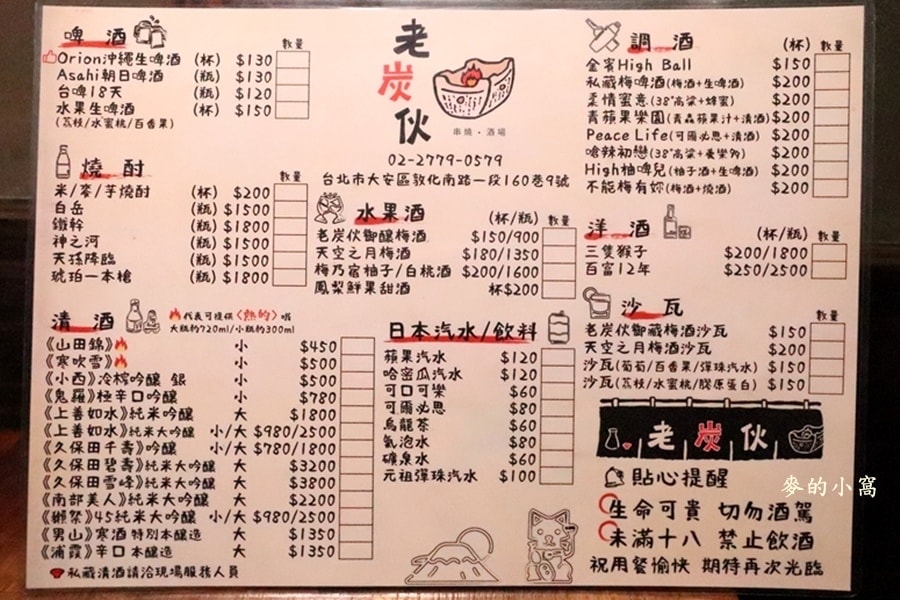 啤 酒
數量
Orion沖繩生啤酒 (杯) $130
Asahi朝日啤酒 (瓶) $130
台啤18天 (瓶) $120
水果生啤酒 (杯) $150
(荔枝/水蜜桃/百香果)
燒 酎
數量
米/麥/芋燒酎 (杯) $200
白岳 (瓶) $1500
鐵幹 (瓶) $1800
神之河 (瓶) $1500
天孫降臨 (瓶) $1500
琥珀一本槍 (瓶) $1800
老炭伙
串燒·酒場
02-2779-0579
台北市大安區敦化南路一段160巷9號
水果酒 (杯/瓶)
數量
老炭伙御釀梅酒 $150/900
天空之月梅酒 $180/1350
梅乃宿柚子/白桃酒 $200/1600
鳳梨鮮果甜酒 杯$200
調 酒 (杯)
數量
金賓High Ball $150
私藏梅啤酒(梅酒+生啤酒) $200
柔情蜜意(38°高粱+蜂蜜) $200
青蘋果樂園(青森蘋果汁+清酒) $200
Peace Life(可爾必思+清酒) $200
嗆辣初戀(38°高粱+養樂多) $200
High柚啤兒(柚子酒+生啤酒) $200
不能梅有妳(梅酒+燒酒) $200
洋 酒 (杯/瓶)
數量
三隻猴子 $200/1800
百富12年 $250/2500
沙 瓦
數量
老炭伙御藏梅酒沙瓦 $150
天空之月梅酒沙瓦 $200
沙瓦(葡萄/百香果/彈珠汽水) $150
沙瓦(荔枝/水蜜桃/膠原蛋白) $150
清 酒
代表可提供〈熱的〉喔
大瓶約720ml/小瓶約300ml
《山田錦》 小 $450
《寒吹雪》 小 $500
《小西》冷榨吟釀 銀 小 $500
《鬼羅》極辛口吟釀 小 $780
《上善如水》純米吟釀 大 $1800
《上善如水》純米大吟釀 小/大 $980/2500
《久保田千壽》吟釀 小/大 $780/1800
《久保田碧壽》純米大吟釀 大 $3200
《久保田雪峰》純米大吟釀 大 $3800
《南部美人》純米大吟釀 大 $2200
《獺祭》45純米大吟釀 小/大 $980/2500
《男山》寒酒 特別本釀造 大 $1350
《浦霞》辛口 本釀造 大 $1350
私藏清酒請洽現場服務人員
日本汽水/飲料
蘋果汽水 $120
哈密瓜汽水 $120
可口可樂 $60
可爾必思 $80
烏龍茶 $60
氣泡水 $80
礦泉水 $60
元祖彈珠汽水 $100
老炭伙
貼心提醒
生命可貴 切勿酒駕
未滿十八 禁止飲酒
祝用餐愉快 期待再次光臨
麥的小窩